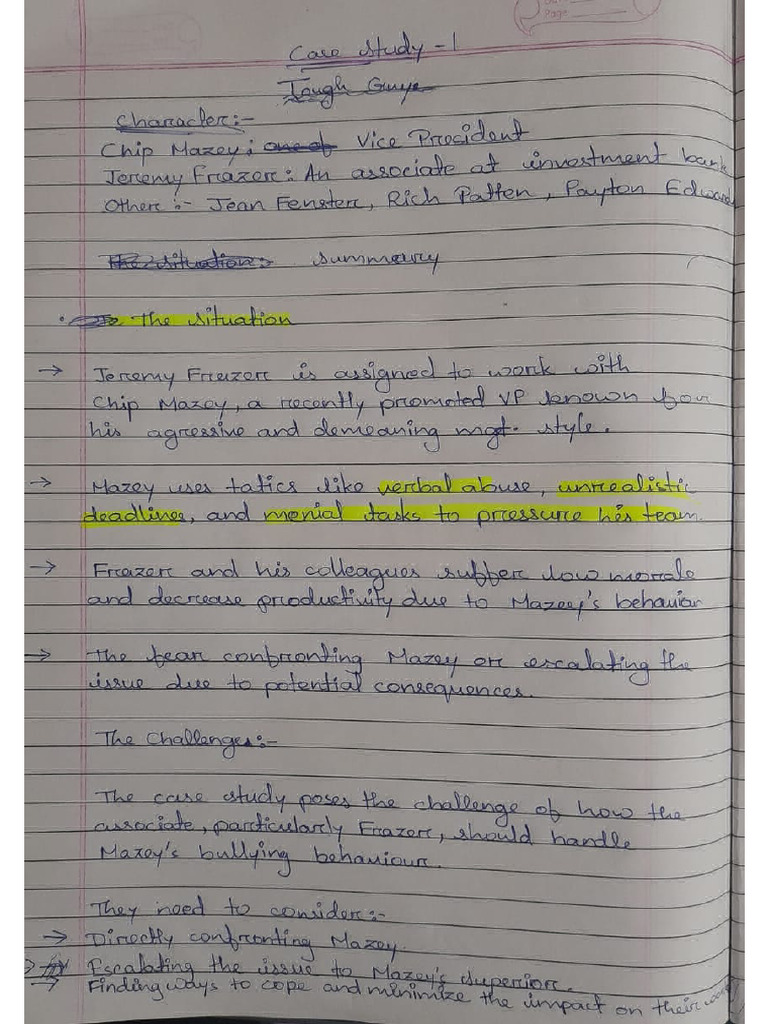 Page
Case study - 1
Tough Guys
Character:-
Chip Mazey; one of Vice President
Jeremy Frazer: An associate at investment bank
Other :- Jean Fenster, Rich Patten, Payton Edward
The situation:- summary
The situation
→ Jeremy Frazer is assigned to work with
Chip Mazey, a recently promoted VP known for
his agressive and demeaning mgt. style.
→ Mazey uses tatics like verbal abuse, unrealistic
deadlines, and menial tasks to pressure his team.
→ Frazer and his colleagues suffer low morale
and decrease productivity due to Mazey's behavior
→ The fear confronting Mazey or escalating the
issue due to potential consequences.
The Challenges:-
The case study poses the challenge of how the
associate, particularly Frazer, should handle
Mazey's bullying behaviour.
They need to consider:-
→ Directly confronting Mazey.
Escalating the issue to Mazey's superior.
→ Finding ways to cope and minimize the impact on their work